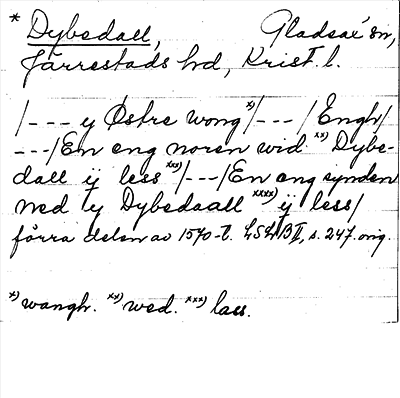 * Dybsdall, Gladsax sn,
Järrestads hd, Krist. l.
/--- y Østre wong x)/--- /Engh/
---/En eng noren wid xx) Dybs-
dall ij less xxx)/---/En eng synden
ned y Dybsdaall xxxx) ij less/
förra delen av 1570-t. LSLJB II, s. 247. orig.
x) wangh. xx) wed. xxx) lass.